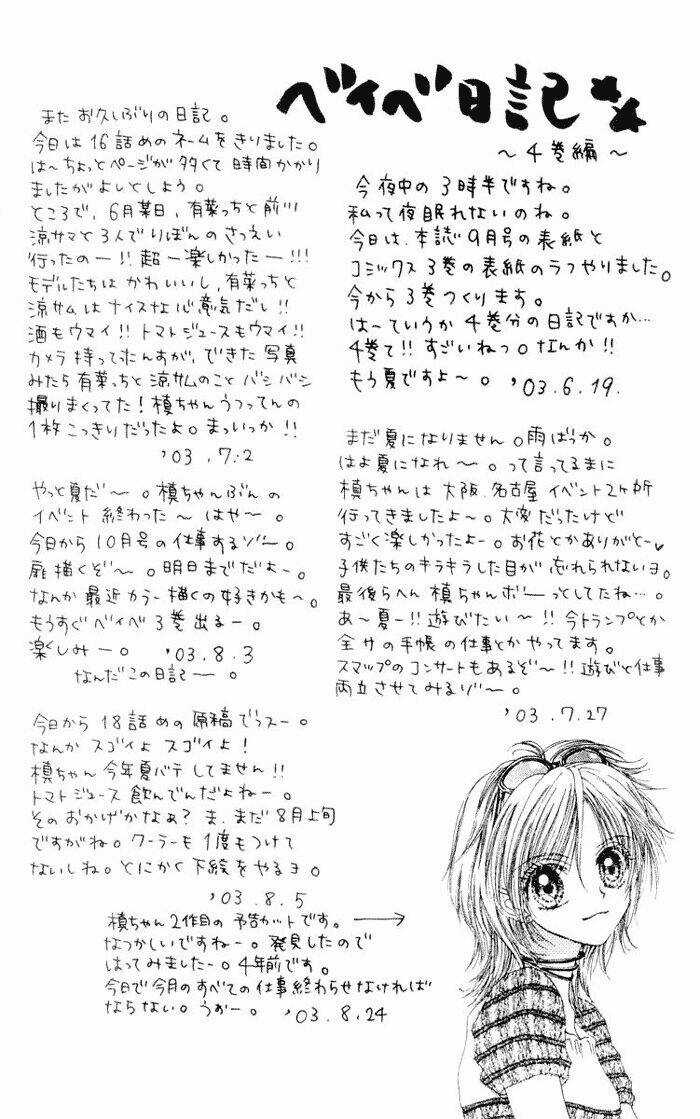 ベイベ日記
～4巻編～
今夜中の3時半ですね。
私って夜眠れないのね。
今日は、本誌9月号の表紙と
コミックス3巻の表紙のラフやりました。
今から3巻つくります。
は～ていうか4巻分の日記ですか…
4巻て!!すごいねっ。なんか!!
もう夏ですよ～。'03.6.19.
まだ夏になりません。雨ばっか。
はよ夏になれ～。って言ってるまに
槙ちゃんは大阪、名古屋イベント2ヶ所
行ってきましたよ～。大変だったけど
すごく楽しかったよー。お花とかありがと～♥
子供たちのキラキラした目が忘れられないヨ。
最後らへん槙ちゃんボーっとしてたね…。
あ～夏ー!!遊びたい～!!今トランプとか
全サの手帳の仕事とかやってます。
スマップのコンサートもあるぞ～!!遊びと仕事
両立させてみるゾ～。
'03.7.27
またお久しぶりの日記。
今日は16話めのネームをきりました。
は～ちょっとページが多くて時間かかり
ましたがよしとしよう。
ところで、6月某日、有菜っちと前川
涼サマと3人でりぼんのさつえい
行ったのー!!超ー楽しかったー!!!
モデルたちはかわいいし、有菜っちと
涼サムはナイスな心意気だし!!
酒もウマイ!!トマトジュースもウマイ!!
カメラ持って来たんすが、できた写真
みたら有菜っちと涼サムのことバシバシ
撮りまくってた!槙ちゃんうつってんの
1枚こっきりだったよ。まっいっか!!
'03.7.2
やっと夏だ～。槙ちゃんぶんの
イベント終わった～はや～。
今日から10月号の仕事するゾ～。
扉描くぞ～。明日までだよー。
なんか最近カラー描くの好きかも～。
もうすぐベイベ3巻出るー。
楽しみー。'03.8.3
なんだこの日記ー。
今日から18話めの原稿でっスー。
なんかスゴイよスゴイよ!
槙ちゃん今年夏バテしてません!!
トマトジュース飲んでんだよねー。
そのおかげかなぁ?ま、まだ8月上旬
ですがね。クーラーも1度もつけて
ないしね。とにかく下絵をやるヨ。
'03.8.5
槙ちゃん2作目の予告カットです。→
なつかしいですねー。発見したので
はってみましたー。4年前です。
今日で今月のすべての仕事終わらせなければ
ならない。うおー。'03.8.24